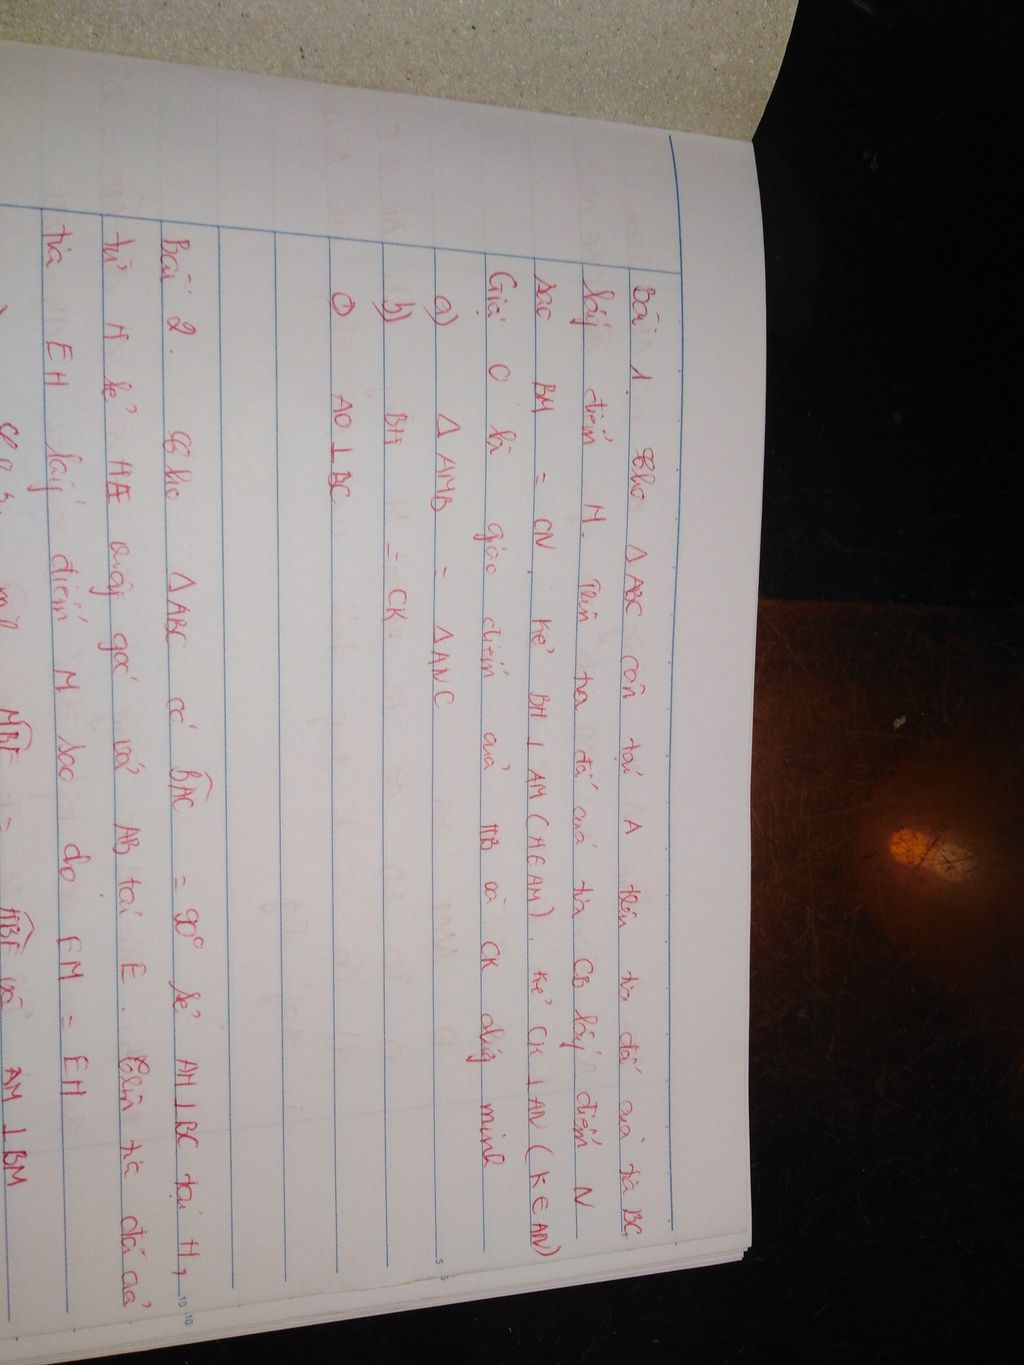 Bài 1. Cho ΔABC cân tại A trên tia đối của tia BC
lấy điểm M. Trên tia đối của tia CB lấy điểm N
sao BM = CN. Kẻ BH ⊥ AM (H ∈ AM). Kẻ CK ⊥ AN (K ∈ AN)
Gọi O là giao điểm của HB và CK chứng minh
a) ΔAMB = ΔANC
b) BH = CK.
c) AO ⊥ BC
Bài 2. Cho ΔABC có BAC = 90° kẻ AH ⊥ BC tại H,
từ H kẻ HE vuông góc với AB tại E. Trên tia đối của
tia EH lấy điểm M sao do EM = EH
MBE = HBE và AM ⊥ BM